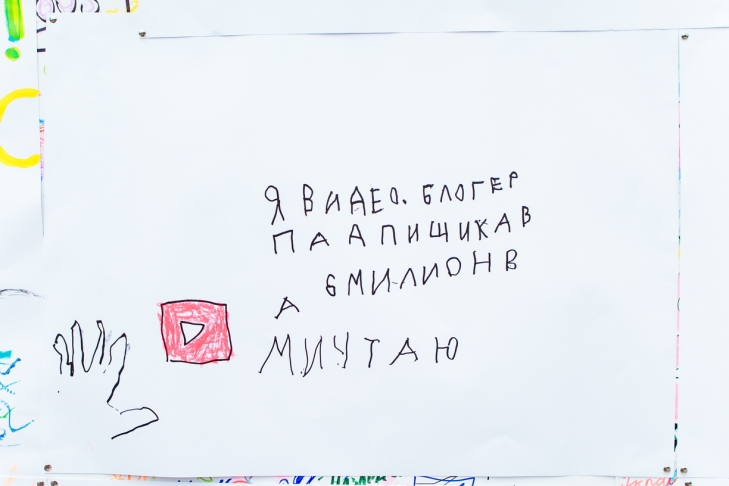 Я ВИДЕО. БЛОГЕР
ПААПИЩИКАВ
А 6 МИЛИОНВ
МИЧТАЮ